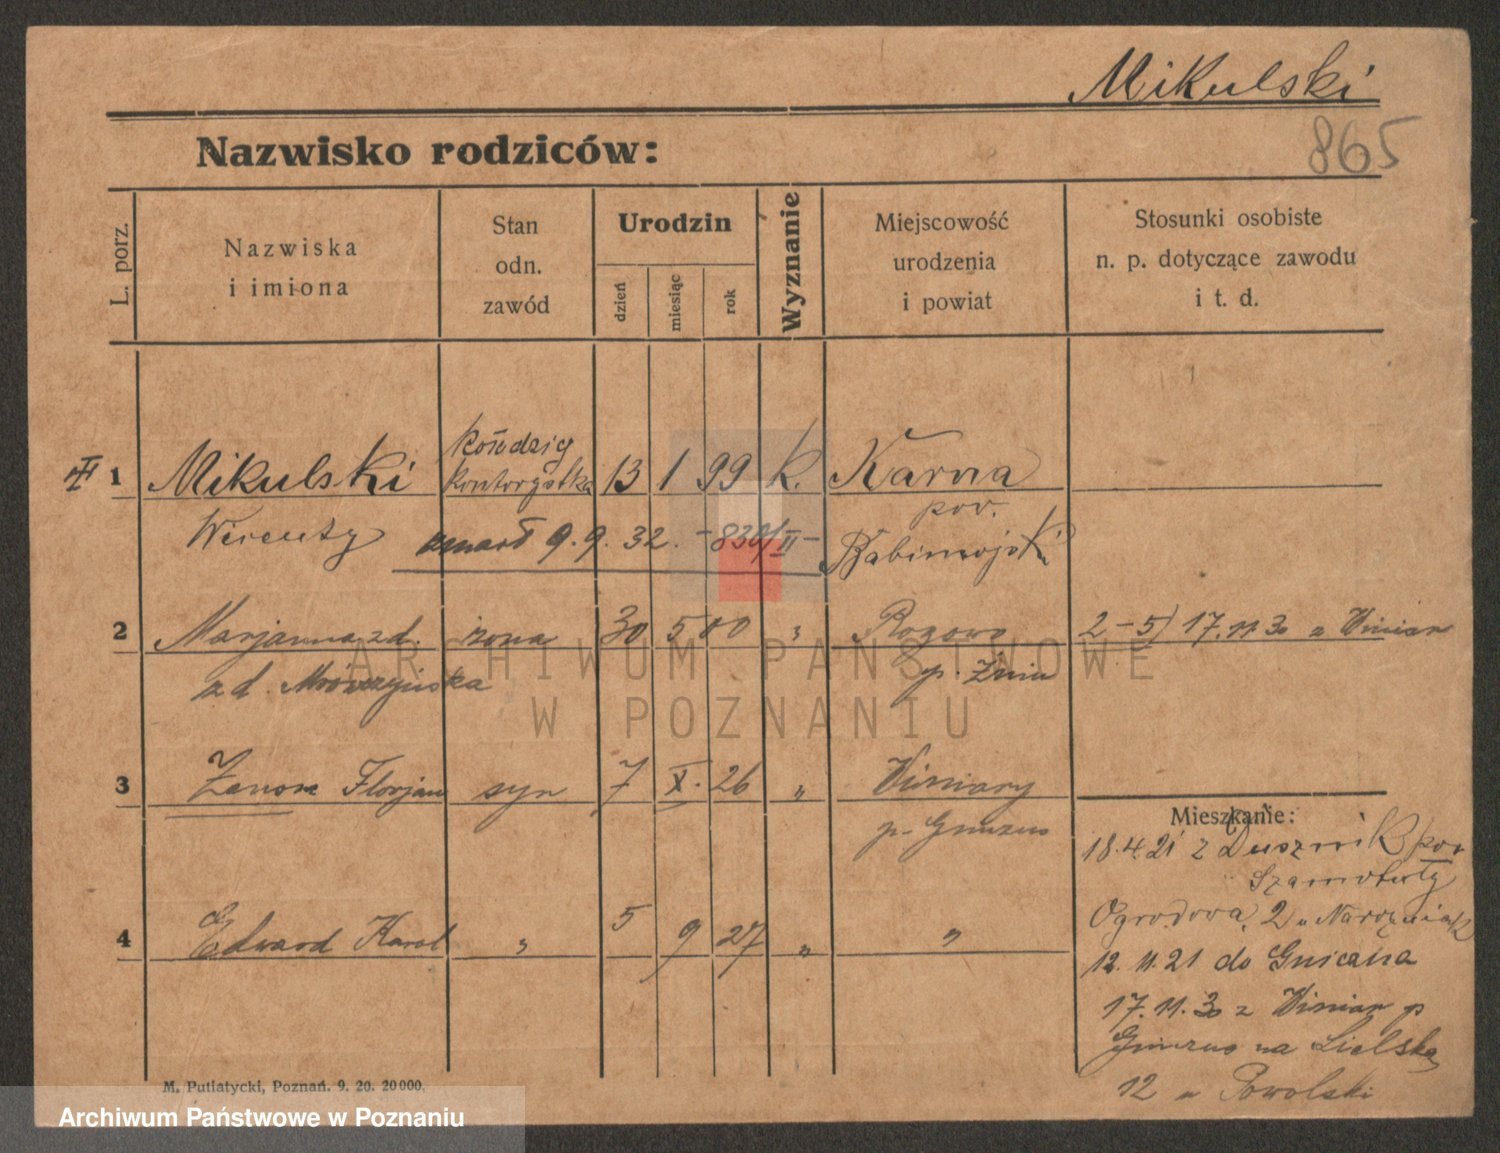 Mikulski
865
Nazwisko rodziców:
L. porz.
Nazwiska
i imiona
Stan
odn.
zawód
Urodzin
dzień
miesiąc
rok
Wyznanie
Miejscowość
urodzenia
i powiat
Stosunki osobiste
n. p. dotyczące zawodu
i t. d.
1 Mikulski 13 1 99 k. Karna
pow.
zmarł 9. 9. 32. -830/II- Babimojski
2 Marjanna zd. żona 30 5 00 " Rogowo 2-5) 17.11.30 z Winiar
zd. Mrówczyńska p. Żnin
3 Zenon Florjan syn 7 X. 26 " Winiary
p. Gniezno
Mieszkanie:
18.4.21 z Dusznik pow
Szamotuły
4 Edward Karol " 5 9 27 " "
Ogrodowa 2 u
12.11.21 do Gniezna
17.11.30 z Winiar p
Gniezno na
12 u Powolski
M. Putiatycki, Poznań. 9. 20. 20000.
ARCHIWUM PAŃSTWOWE
W POZNANIU
Archiwum Państwowe w Poznaniu